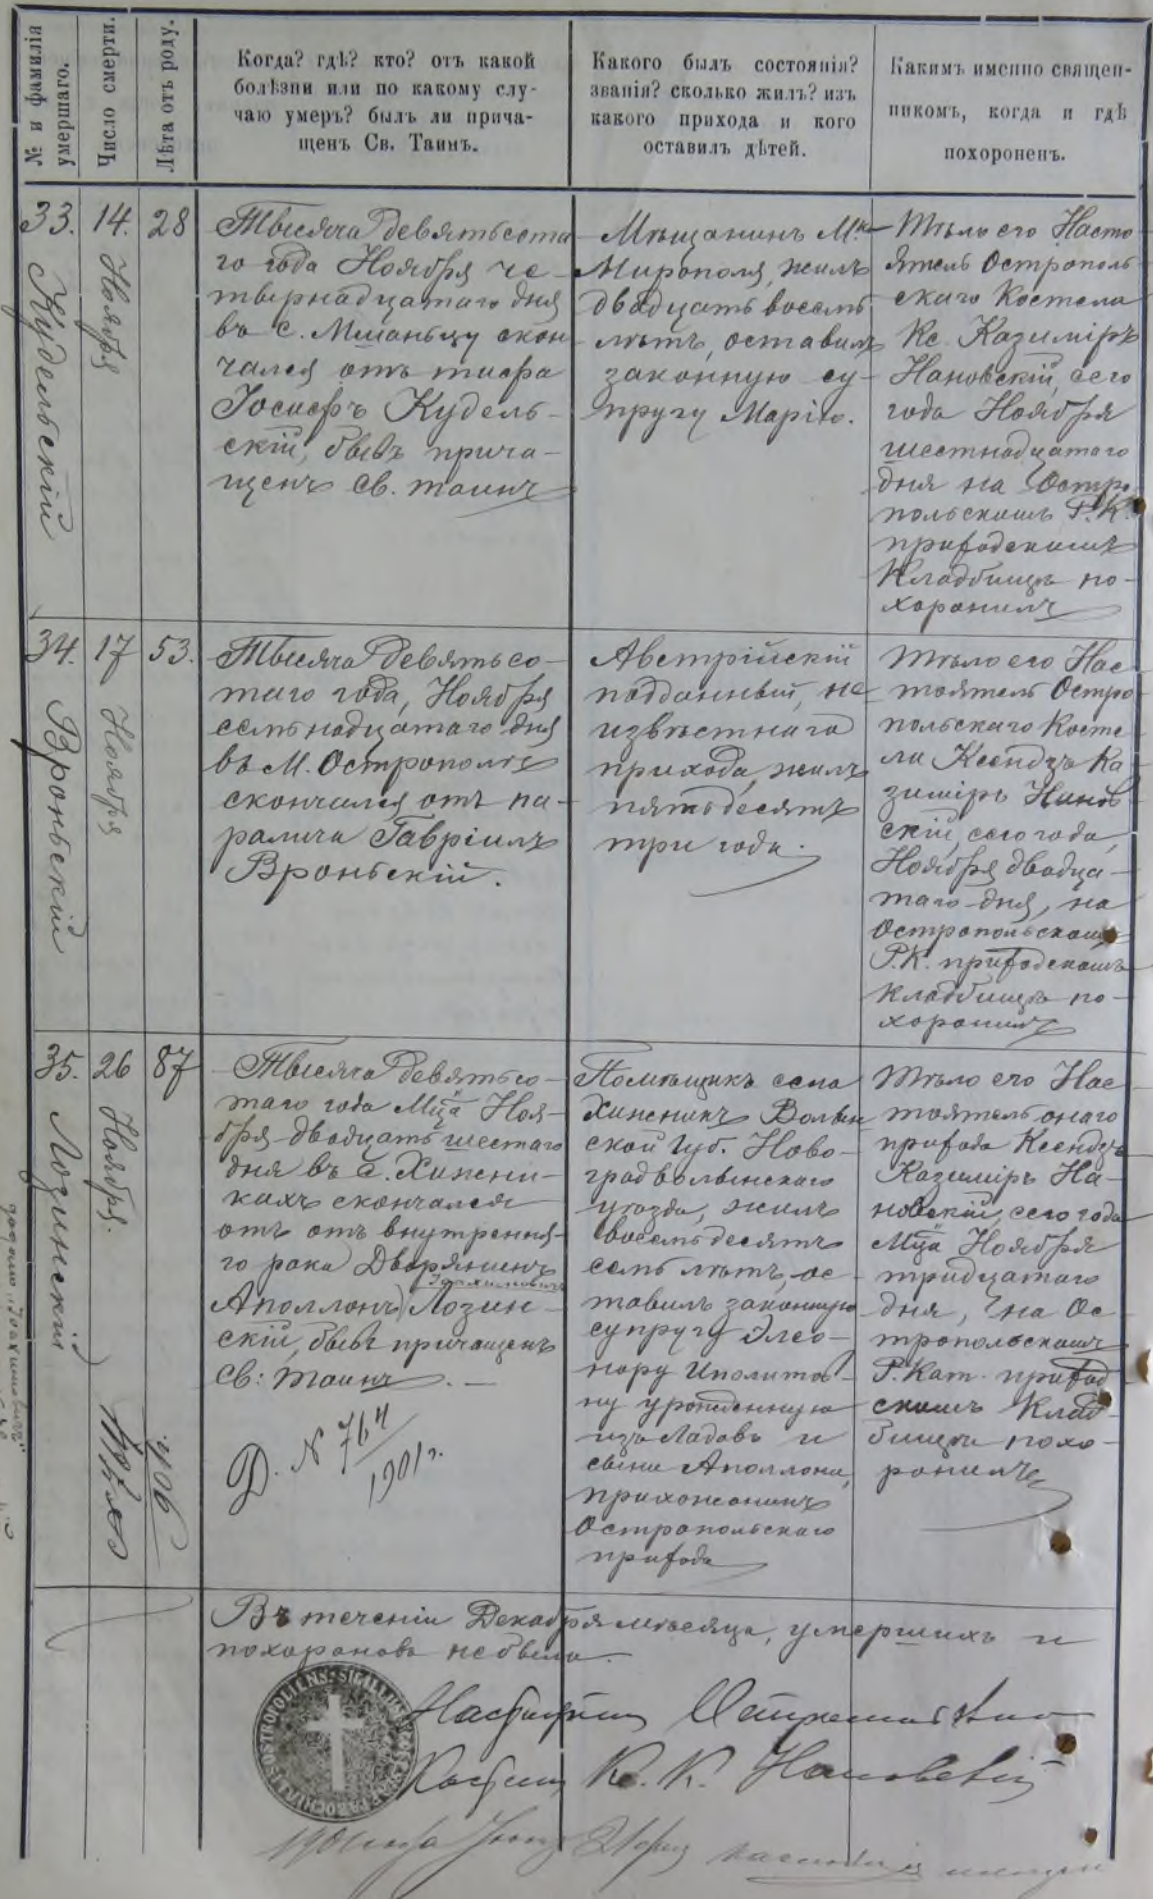 № и фамилія
умершаго.
Число смерти.
Лѣта отъ роду.
Когда? гдѣ? кто? отъ какой
болѣзни или по какому слу-
чаю умеръ? былъ ли прича-
щенъ Св. Таинъ.
Какого былъ состоянія?
званія? сколько жилъ? изъ
какого прихода и кого
оставилъ дѣтей.
Какимъ именно священ-
никомъ, когда и гдѣ
похороненъ.
33.
Кудельскій
14.
Ноября
28
Тысяча девятьсота
го года Ноября че-
тырнадцатаго дня
въ с. скон
чался отъ тифа
Іосифъ Кудель-
скій, бывъ прича-
щенъ Св. таинъ
Мѣщанинъ М.ка
Мирополя, жилъ
двадцать восемь
лѣтъ, оставилъ
законную су-
пругу Марію.
Тѣло его Насто
ятель Острополь
скаго Костела
Кс. Казиміръ
Нановскій, сего
года Ноября
шестнадцатаго
дня на Остро
польскомъ Р. К.
приходскомъ
Кладбищѣ по-
хоронилъ
34.
Вроньскій
17
Ноября
53.
Тысяча девятьсо-
таго года, Ноября
семьнадцатаго дня
въ М. Острополѣ
скончался отъ па-
ралича Гавріилъ
Вроньскій.
Австрійскій
подданный, не
извѣстнаго
прихода, жилъ
пятьдесятъ
три года.
Тѣло его Нас
тоятель Остро
польскаго Косте
ла Ксендзъ Ка
зиміръ Нанов
скій, сего года,
Ноября двадца-
таго дня, на
Остропольскомъ
Р. К. приходскомъ
кладбищѣ по-
хоронилъ
35.
Лозинскій
26
Ноября.
87
Тысяча девятьсо-
таго года Мца Ноя-
бря двадцать шестаго
дня въ с. Хижни-
кахъ скончался
отъ отъ внутрення-
го рака Дворянинъ
Іоахимовичъ
Аполлонъ Лозин-
скій, бывъ причащенъ
Св: таинъ. —
Д. N 764
1901 г.
Помѣщикъ села
Волын
ской Губ. Ново-
градволынскаго
уѣзда, жилъ
восемьдесятъ
семь лѣтъ, ос-
тавилъ законную
супругу Элео-
нору Иполитов-
ну урожденную
изъ Ладовъ и
сына Аполлона,
прихожанинъ
Остропольскаго
прихода
Тѣло его Нас-
тоятель онаго
прихода Ксендзъ
Казиміръ На-
новскій, сего года
Мца Ноября
тридцатаго
дня, на Ос
тропольскомъ
Р. Кат. приход
скомъ Клад-
бищѣ похо-
ронилъ
Въ теченіи Декабря мѣсяца, умершихъ и
похороновъ не было.
К. К. Нановскій